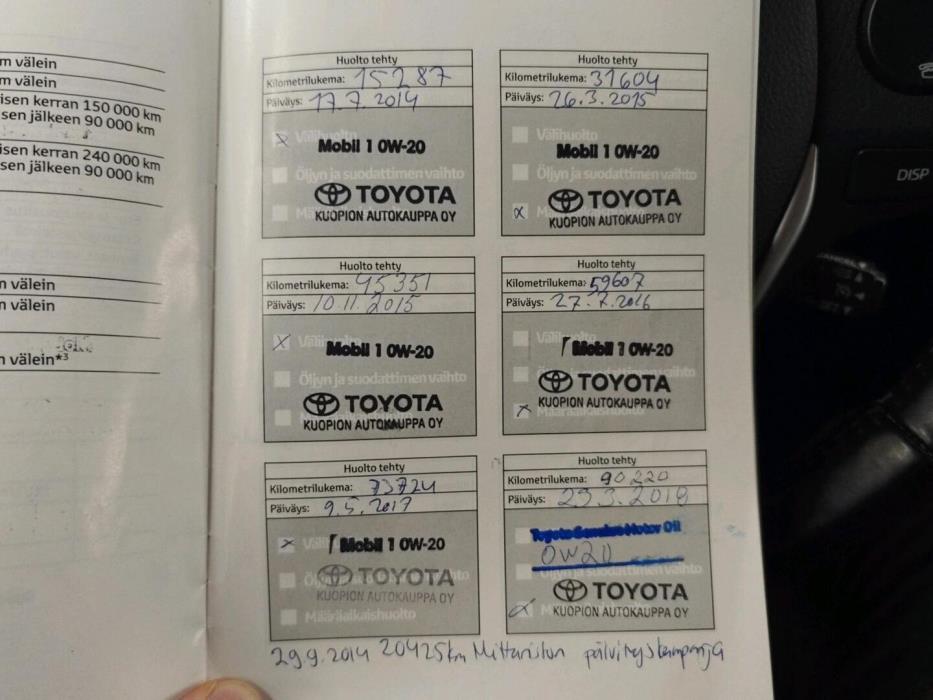 m välein
m välein
isen kerran 150 000 km
sen jälkeen 90 000 km
isen kerran 240 000 km
sen jälkeen 90 000 km
m välein
m välein
n välein*3
Huolto tehty
Kilometrilukema: 15287
Päiväys: 17.7.2014
x Välihuolto
Mobil 1 0W-20
Öljyn ja suodattimen vaihto
TOYOTA
KUOPION AUTOKAUPPA OY
Huolto tehty
Kilometrilukema: 31604
Päiväys: 26.3.2015
Välihuolto
Mobil 1 0W-20
Öljyn ja suodattimen vaihto
TOYOTA
KUOPION AUTOKAUPPA OY
Huolto tehty
Kilometrilukema: 45351
Päiväys: 10.11.2015
x
Mobil 1 0W-20
Öljyn ja suodattimen vaihto
TOYOTA
KUOPION AUTOKAUPPA OY
Huolto tehty
Kilometrilukema: 59607
Päiväys: 27.7.2016
Välihuolto
Mobil 1 0W-20
TOYOTA
x Määräaikaishuolto
KUOPION AUTOKAUPPA OY
Huolto tehty
Kilometrilukema: 73724
Päiväys: 9.5.2017
x
Mobil 1 0W-20
TOYOTA
KUOPION AUTOKAUPPA OY
Määräaikaishuolto
Huolto tehty
Kilometrilukema: 90220
Päiväys: 23.3.2018
Toyota Genuine Motor Oil
0W20
Öljyn ja suodattimen vaihto
TOYOTA
KUOPION AUTOKAUPPA OY
29.9.2014 20425km Mittariston päivityskampanja
DISP